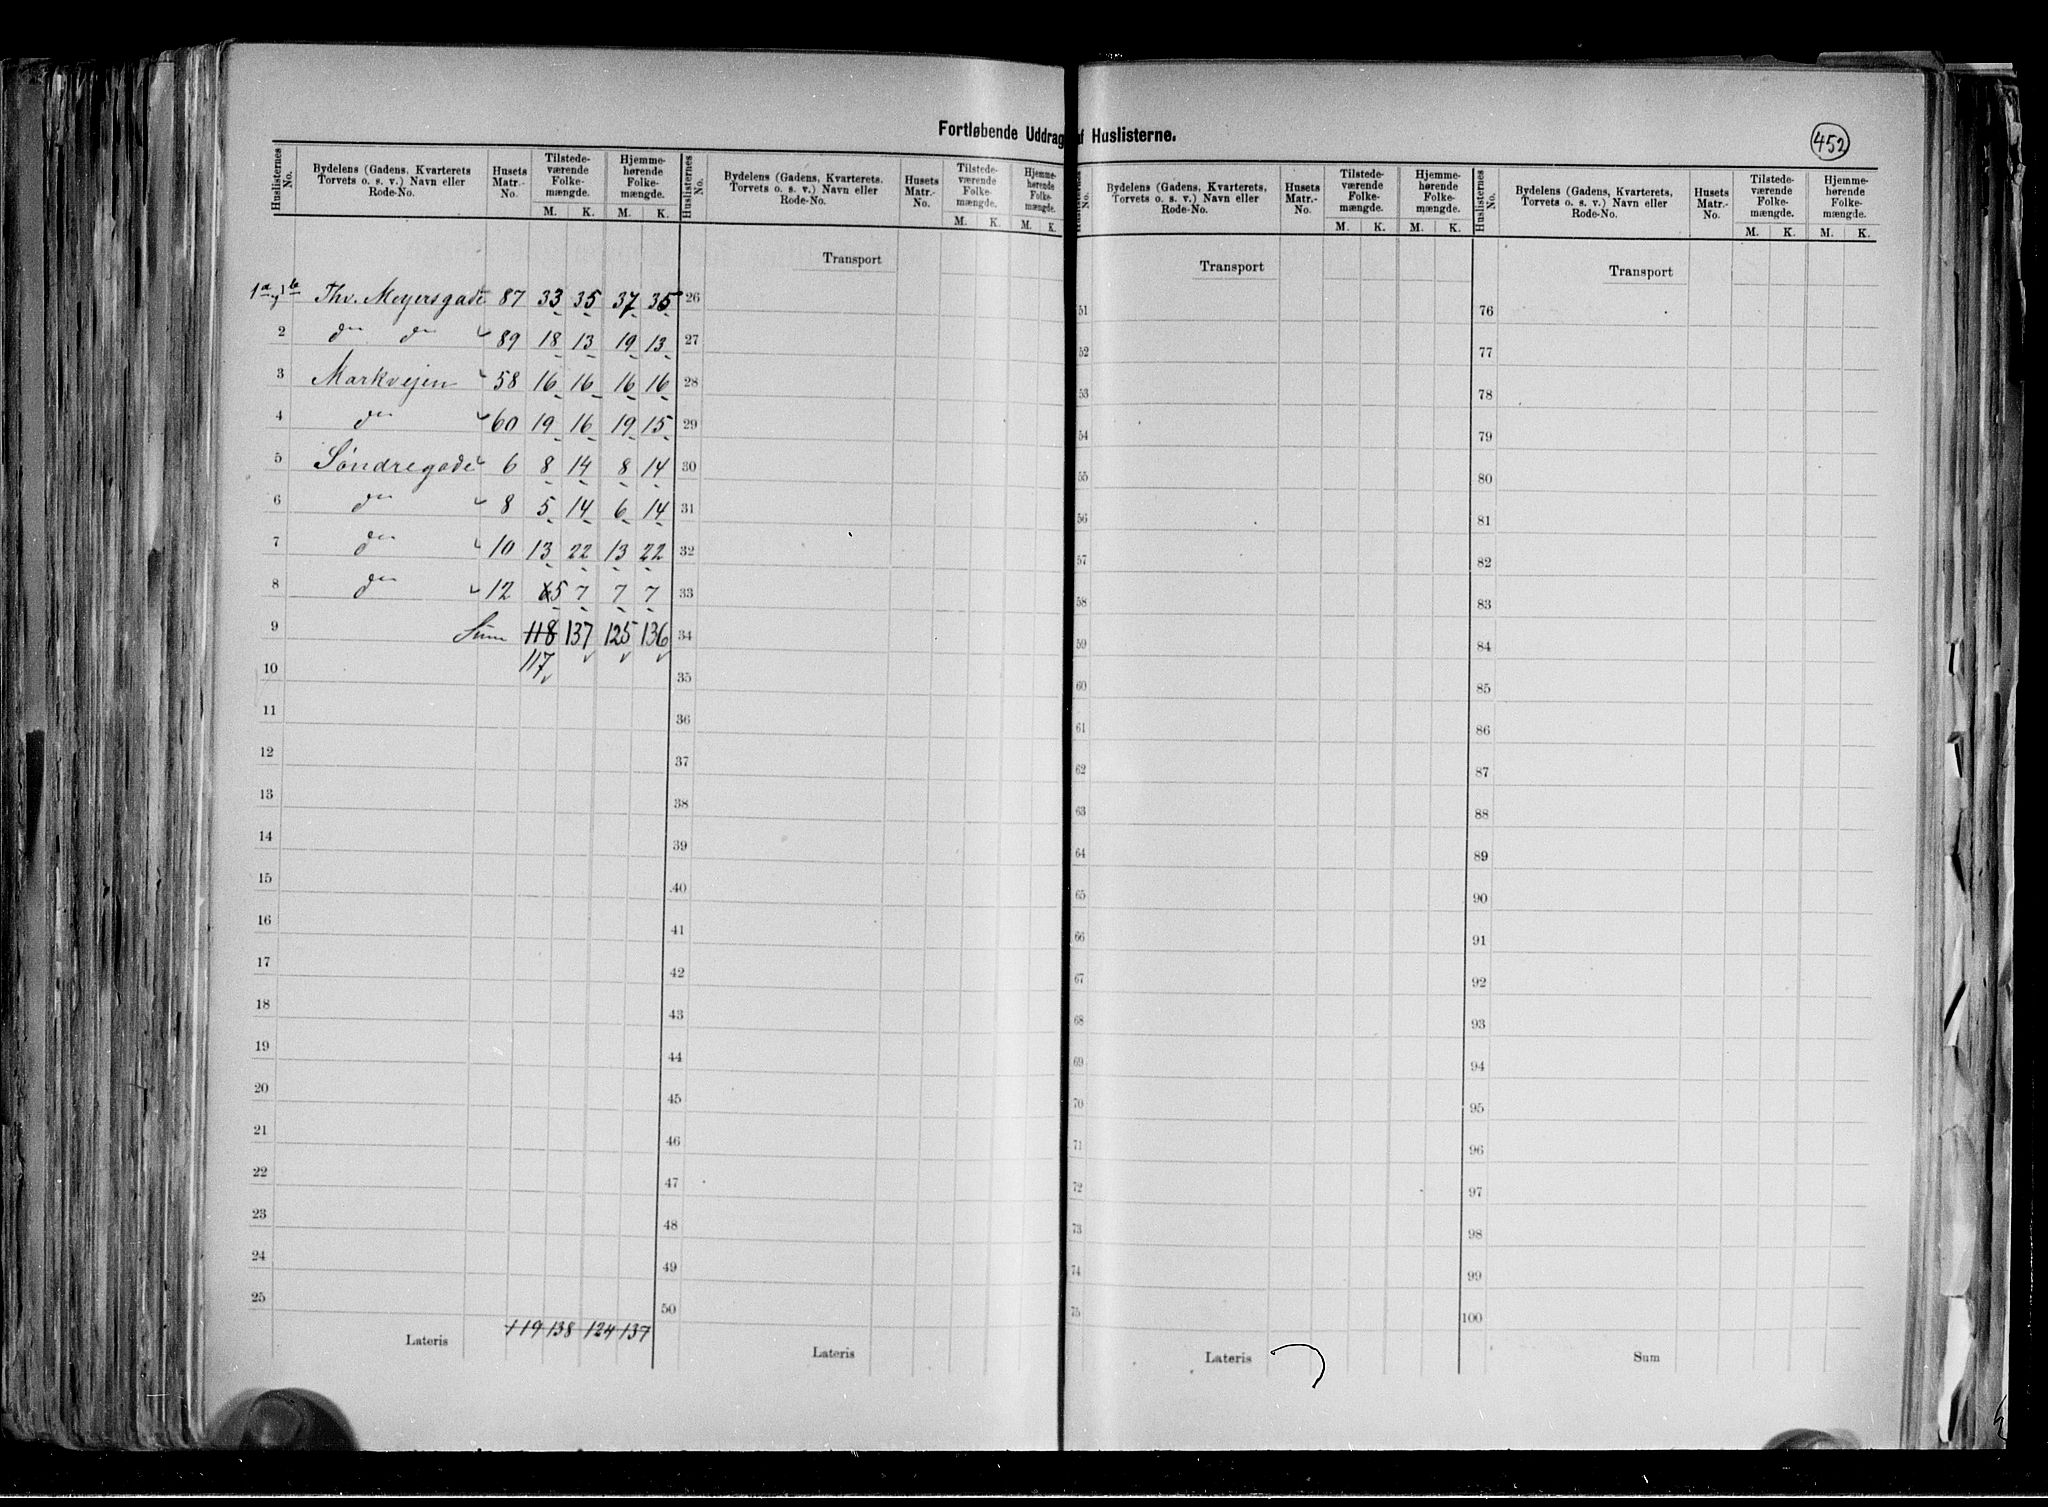 Fortløbende Uddrag af Huslisterne.
452
Huslisternes No. | Bydelens (Gadens, Kvarterets Torvets o. s. v.) Navn eller Rode-No. | Husets Matr.-No. | Tilstedeværende Folkemængde. M. K. | Hjemmehørende Folkemængde. M. K.
1a og 1b Thv. Meyersgade 87 33 35 37 35
2 do do 89 18 13 19 13
3 Markvejen 58 16 16 16 16
4 do 60 19 16 19 15
5 Søndregade 6 8 14 8 14
6 do 8 5 14 6 14
7 do 10 13 22 13 22
8 do 12 5 7 7 7
9 Sum 118 137 125 136
10 117
11
12
13
14
15
16
17
18
19
20
21
22
23
24
25
Lateris 119 138 124 137
Huslisternes No. | Bydelens (Gadens, Kvarterets, Torvets o. s. v.) Navn eller Rode-No. | Husets Matr.-No. | Tilstedeværende Folkemængde. M. K. | Hjemmehørende Folkemængde. M. K.
Transport
26
27
28
29
30
31
32
33
34
35
36
37
38
39
40
41
42
43
44
45
46
47
48
49
50
Lateris
Huslisternes No. | Bydelens (Gadens, Kvarterets, Torvets o. s. v.) Navn eller Rode-No. | Husets Matr.-No. | Tilstedeværende Folkemængde. M. K. | Hjemmehørende Folkemængde. M. K.
Transport
51
52
53
54
55
56
57
58
59
60
61
62
63
64
65
66
67
68
69
70
71
72
73
74
75
Lateris
Huslisternes No. | Bydelens (Gadens, Kvarterets, Torvets o. s. v.) Navn eller Rode-No. | Husets Matr.-No. | Tilstedeværende Folkemængde. M. K. | Hjemmehørende Folkemængde. M. K.
Transport
76
77
78
79
80
81
82
83
84
85
86
87
88
89
90
91
92
93
94
95
96
97
98
99
100
Sum